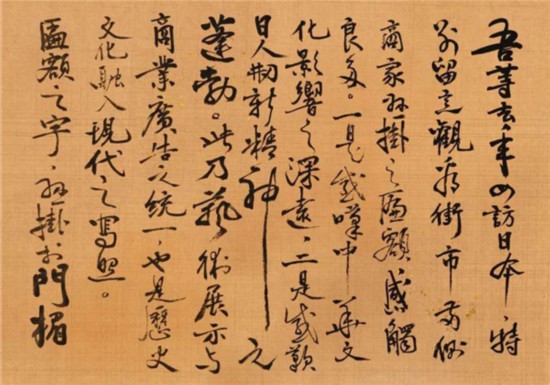 吾等去年訪日本，特
別留意觀看街市兩側
商家懸掛之匾額感觸
良多。一是感嘆中華文
化影響之深遠，二是感歎
日人刱新精神之
蓬勃。此乃藝術展示与
商業廣告之統一，也是歷史
文化融入現代之寫照。
匾額之字，懸掛於門楣